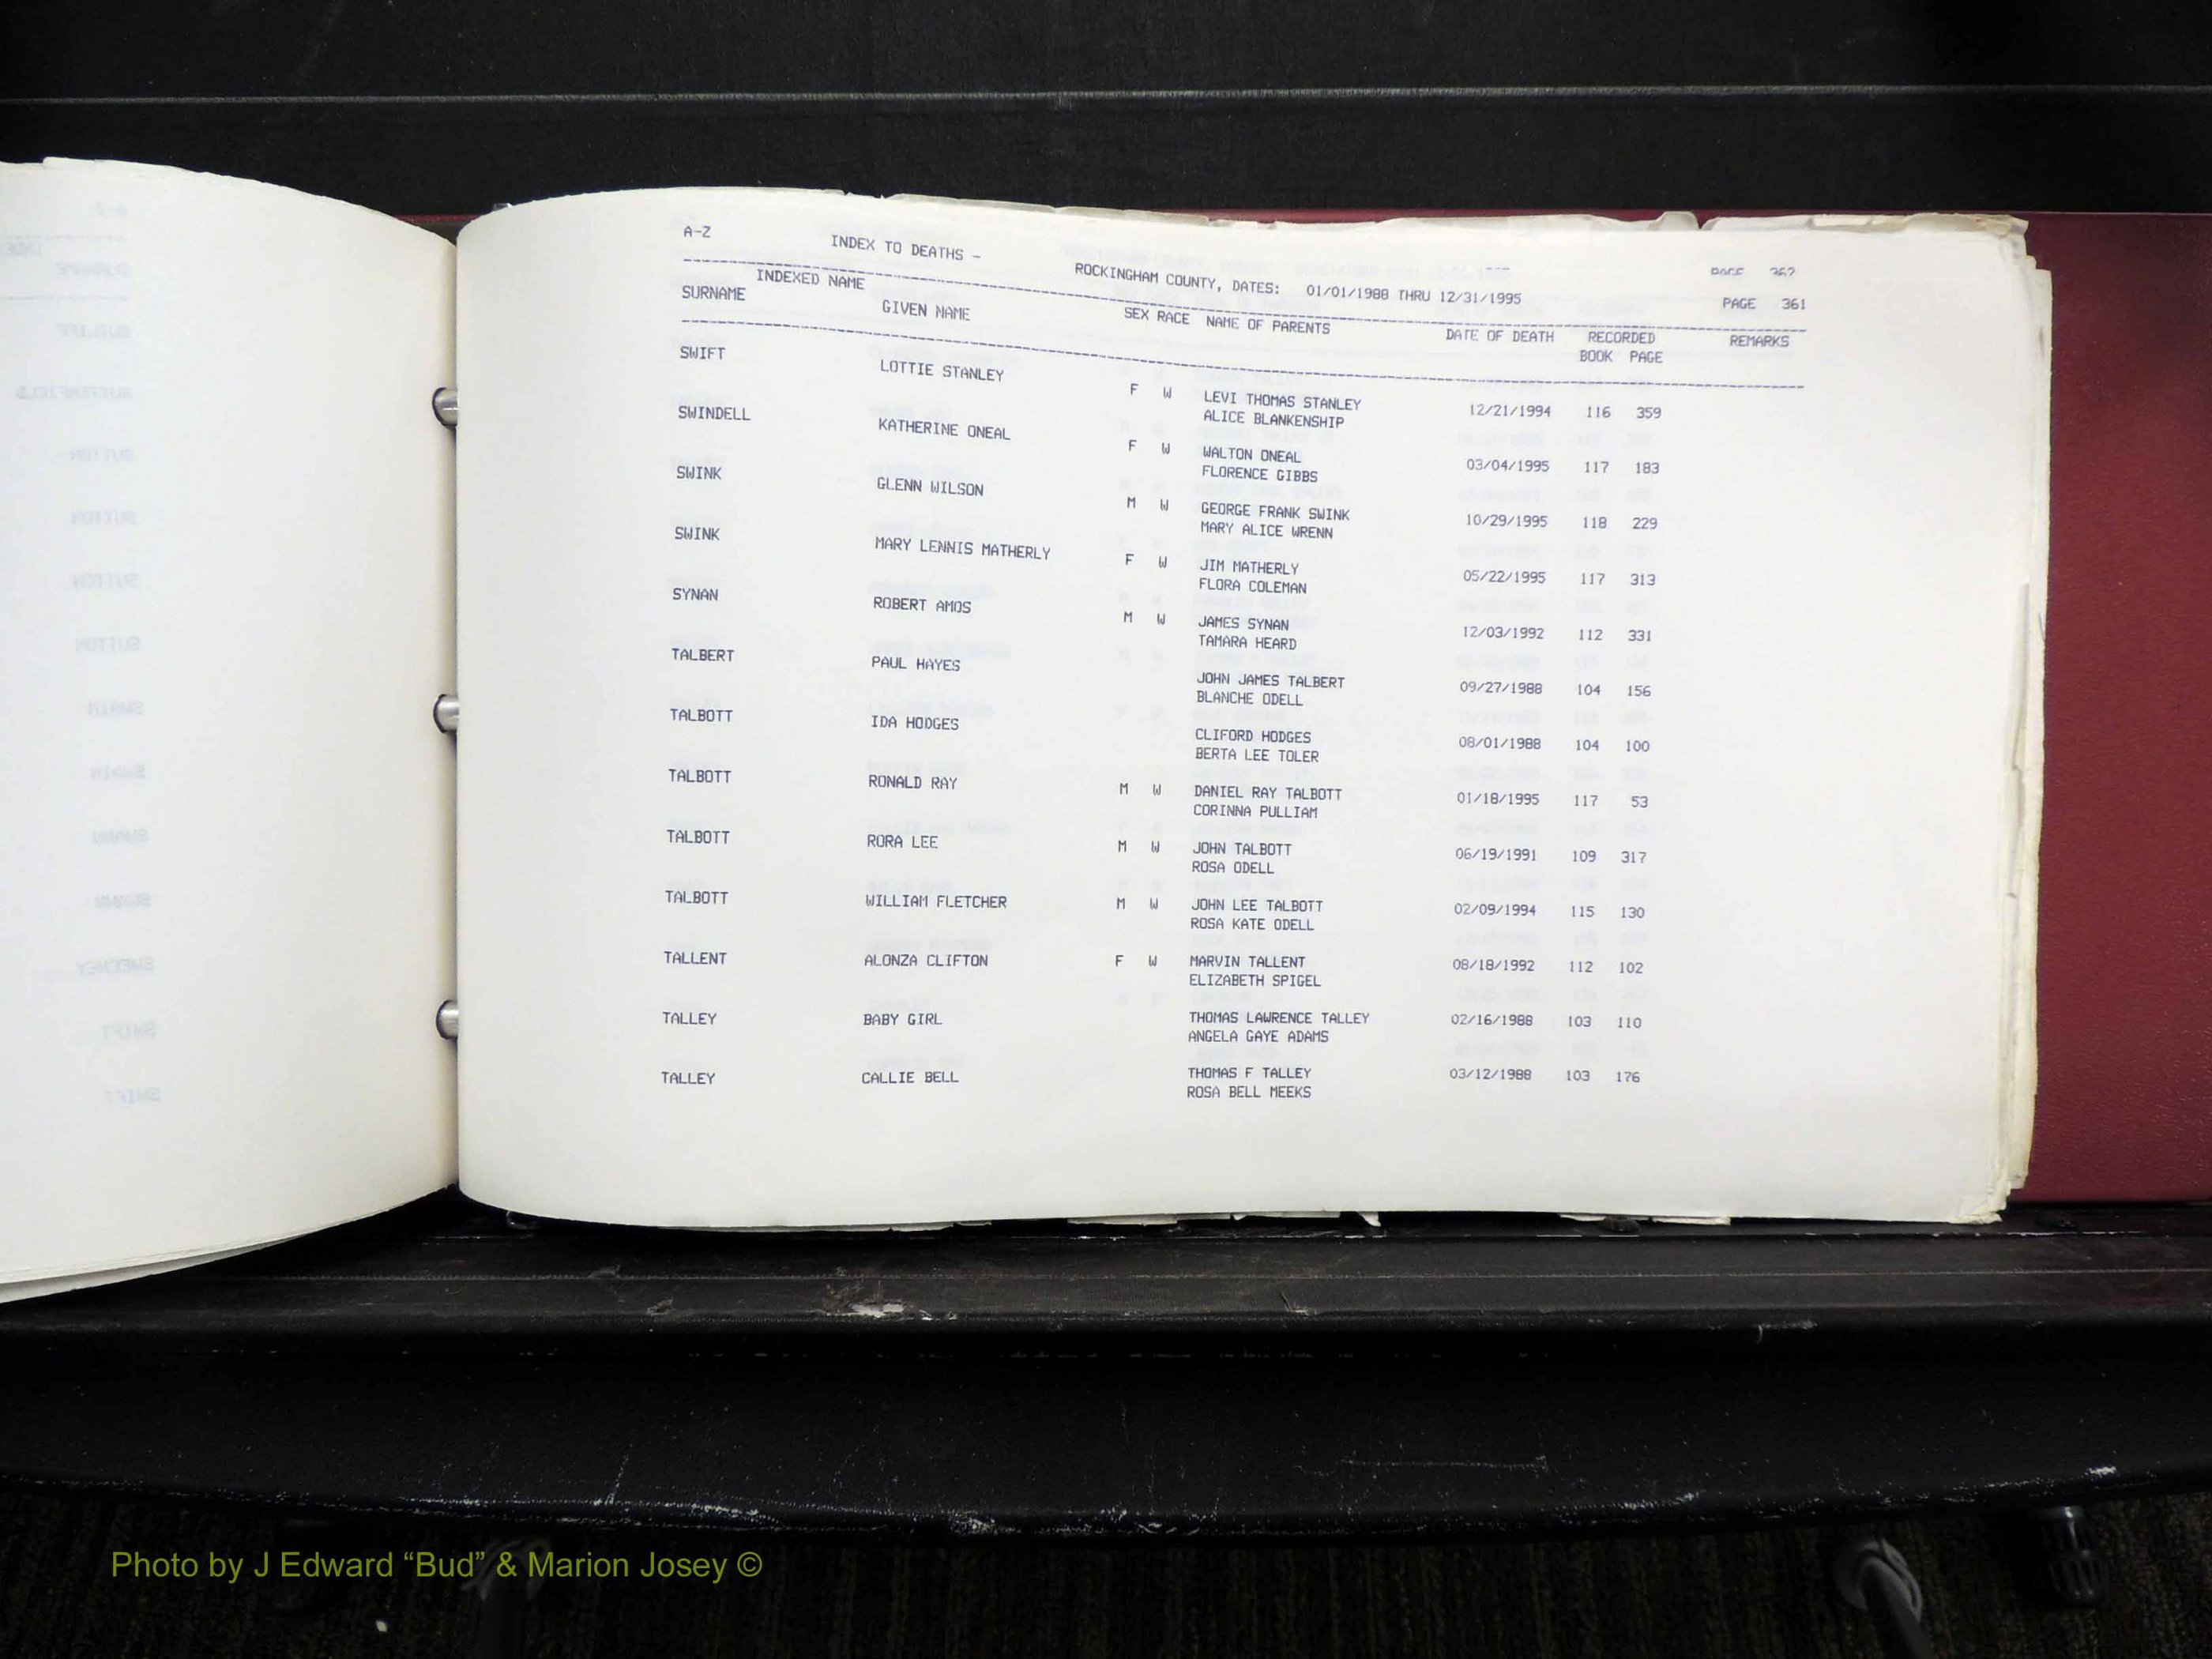 A-Z INDEX TO DEATHS - ROCKINGHAM COUNTY, DATES: 01/01/1988 THRU 12/31/1995 PAGE 361
INDEXED NAME
SURNAME GIVEN NAME SEX RACE NAME OF PARENTS DATE OF DEATH RECORDED REMARKS
BOOK PAGE
SWIFT LOTTIE STANLEY F W LEVI THOMAS STANLEY 12/21/1994 116 359
ALICE BLANKENSHIP
SWINDELL KATHERINE ONEAL F W WALTON ONEAL 03/04/1995 117 183
FLORENCE GIBBS
SWINK GLENN WILSON M W GEORGE FRANK SWINK 10/29/1995 118 229
MARY ALICE WRENN
SWINK MARY LENNIS MATHERLY F W JIM MATHERLY 05/22/1995 117 313
FLORA COLEMAN
SYNAN ROBERT AMOS M W JAMES SYNAN 12/03/1992 112 331
TAMARA HEARD
TALBERT PAUL HAYES JOHN JAMES TALBERT 09/27/1988 104 156
BLANCHE ODELL
TALBOTT IDA HODGES CLIFORD HODGES 08/01/1988 104 100
BERTA LEE TOLER
TALBOTT RONALD RAY M W DANIEL RAY TALBOTT 01/18/1995 117 53
CORINNA PULLIAM
TALBOTT RORA LEE M W JOHN TALBOTT 06/19/1991 109 317
ROSA ODELL
TALBOTT WILLIAM FLETCHER M W JOHN LEE TALBOTT 02/09/1994 115 130
ROSA KATE ODELL
TALLENT ALONZA CLIFTON F W MARVIN TALLENT 08/18/1992 112 102
ELIZABETH SPIGEL
TALLEY BABY GIRL THOMAS LAWRENCE TALLEY 02/16/1988 103 110
ANGELA GAYE ADAMS
TALLEY CALLIE BELL THOMAS F TALLEY 03/12/1988 103 176
ROSA BELL MEEKS
Photo by J Edward “Bud” & Marion Josey ©